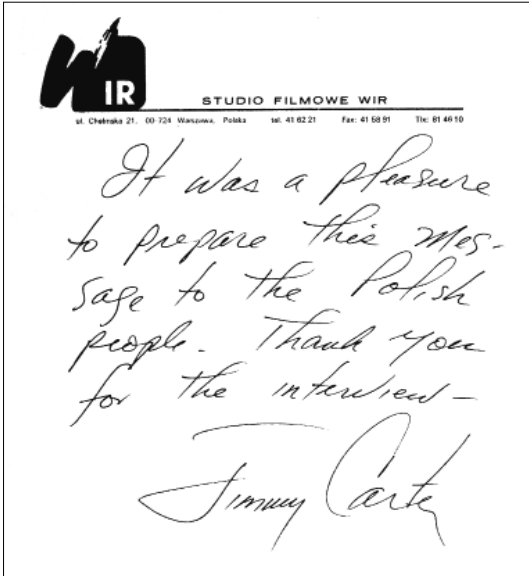 WIR
STUDIO FILMOWE WIR
ul. Chełmska 21, 00-724 Warszawa, Polska tel. 41 62 21 Fax: 41 58 91 Tlx: 81 46 10
It was a pleasure
to prepare this mes-
sage to the Polish
people. Thank you
for the interview-
Jimmy Carter